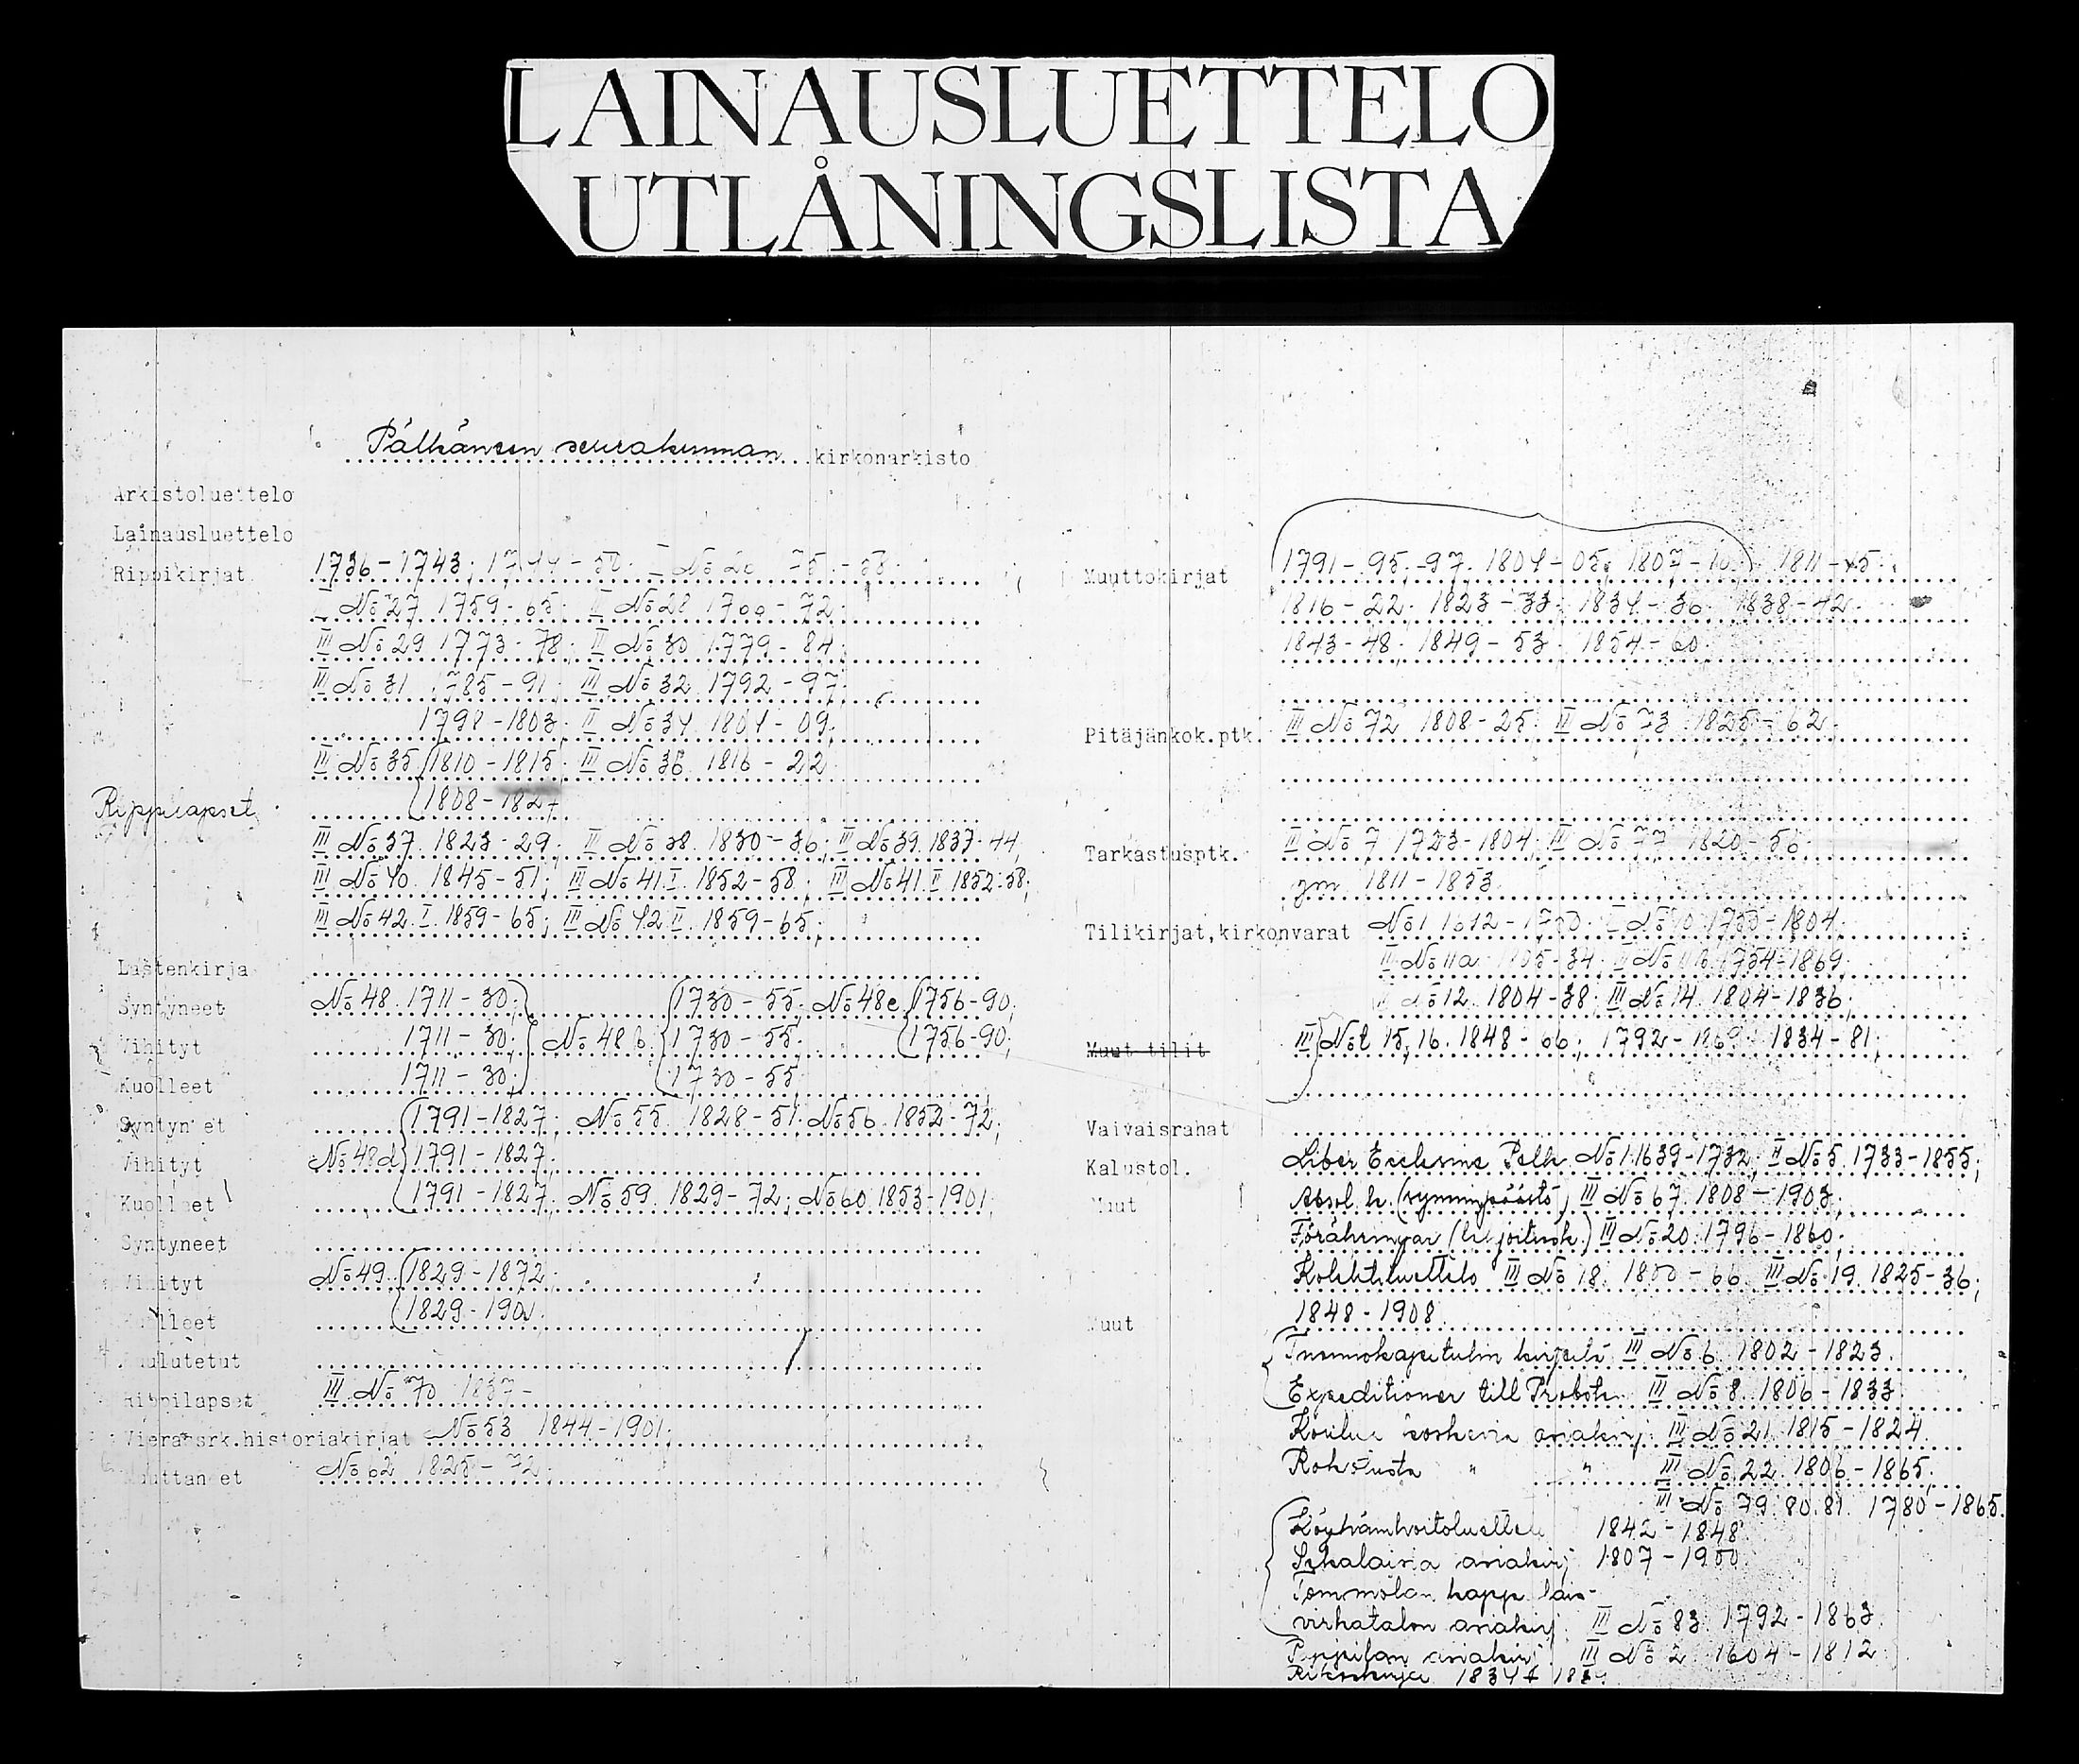 LAINAUSLUETTELO
UTLÅNINGSLISTA
Pälkäneen seurakunnan kirkonarkisto
Arkistoluettelo
Lainausluettelo
Rippikirjat 1736-1743; 1744-52.
No 27 1759-65; II No 28 1766-72;
III No 29 1773-78; III No 30 1779-84;
III No 31 1785-91; III No 32 1792-97;
1798-1803; II No 34 1804-09;
III No 35 1810-1815; III No 36 1816-22
Rippilapset 1808-1827
III No 37 1823-29; III No 38. 1830-36; III No 39. 1837-44;
III No 40. 1845-51; III No 41.I. 1852-58; III No 41.II 1852-58;
III No 42.I. 1859-65; III No 42.II. 1859-65;
Lastenkirja
Syntyneet No 48. 1711-30; 1730-55; No 48c 1756-90;
Vihityt 1711-30; No 48 b. 1730-55; 1756-90;
Kuolleet 1711-30; 1730-55
Syntyneet 1791-1827; No 55 1828-51; No 56. 1852-72;
Vihityt No 48d 1791-1827;
Kuolleet 1791-1827; No 59. 1829-72; No 60 1853-1901;
Syntyneet
Vihityt No 49. 1829-1872
Kuolleet 1829-1901.
Kuulutetut
Rippilapset III No 70 1837-
Vierassrk.historiakirjat No 53 1844-1901;
Muuttaneet No 62 1825-72;
Muuttokirjat 1791-95,-97. 1804-05, 1807-10 1811-15;
1816-22; 1823-33; 1834-36; 1838-42.
1843-48; 1849-53; 1854-60
Pitäjänkok.ptk. III No 72 1808-25; III No 73 1825-62
Tarkastusptk. III No 7 1723-1804; III No 77 1820-56;
ym 1811-1853
Tilikirjat,kirkonvarat No 1 1755-1804;
II No 11a 1754-1869;
No 12. 1804-38; III No 14. 1804-1836;
Muut tilit III No t 15, 16. 1848-66; 1792-1869 1834-81;
Vaivaisrahat
Kalustol. Liber Ecclesiae Pelk. No 1. 1639-1732; II No 5. 1733-1855;
Muut Absol. k. (synninpäästö) III No 67. 1808-1903;
Förähringar (lahjoitusk.) III No 20. 1796-1860;
Kolehtiluettelo III No 18. 1800-66 III No 19. 1825-36;
1848-1908
Muut
Tuomiokapitulin kirjeitä III No 6 1802-1823.
Expeditioner till Probst. III No 8. 1806-1833.
Koulua koskevia asiakirj III No 21 1815-1824.
Rokotusta " " III No 22. 1806-1865;
III No 79. 80. 81. 1780-1865.
Köyhäinhoitoluettelo 1842-1848
Sekalaisia asiakirj 1807-1900
Tommolan kapp. lais-
virkatalon asiakirj. III No 83. 1792-1863.
Pappilan asiakirj. III No 2 1604-1812